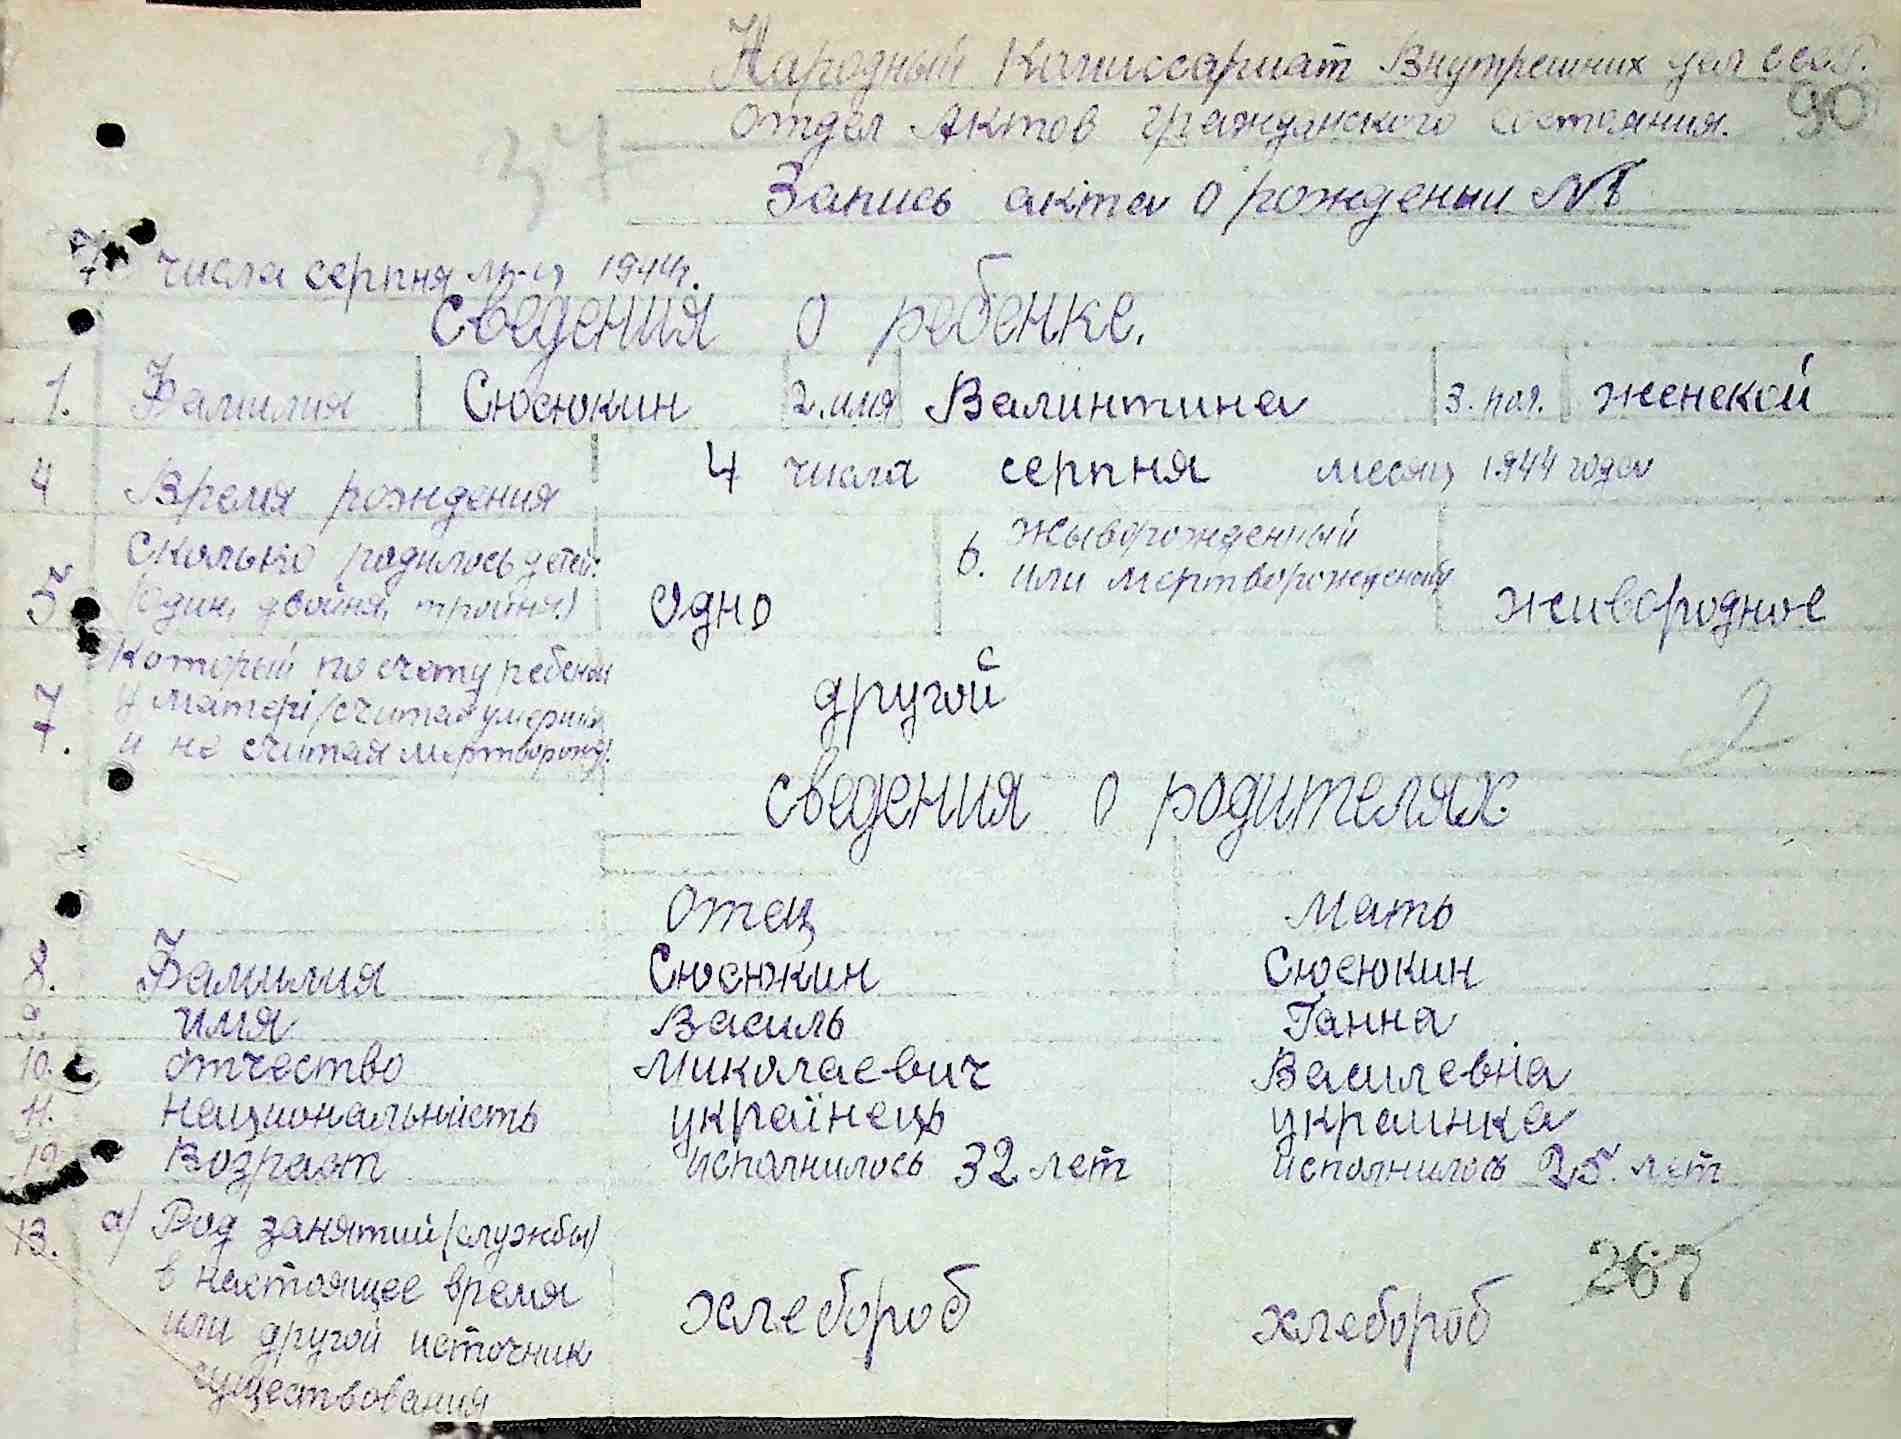 Народный Комиссариат Внутрешних дел СССР.
Отдел Актов гражданского состояния. 90
37
Запись акта о рождении №
7 числа серпня м-ц 1944г.
Сведения о ребенке.
1. Фамилия Сюсюкин 2. имя Валинтина 3. пол. женской
4 Время рождения 4 числа серпня месяц 1944 года
5 Сколько родилось детей: (один, двойня, тройня) Одно 6. Жыворожденный или мертворожденный живородное
7. Который по счету ребенок у матері (считая умерших и не считая мертворожд. другой
2
Сведения о родителях.
Отец Мать
8. Фамилия Сюсюкин Сюсюкин
9. имя Василь Ганна
10. отчество Миколаевич Василевна
11. национальність украінець украинка
12 Возраст исполнилось 32 лет исполнилось 25. лет
13. а) Род занятий (службы)
в настоящее время
или другой источник
существования хлебороб хлебороб
267